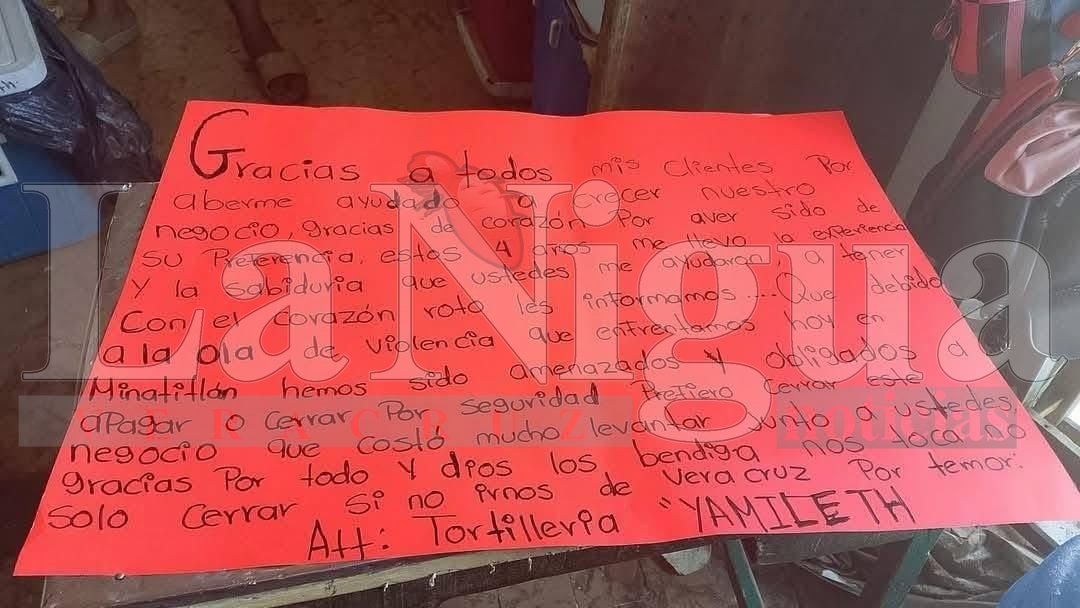 Gracias a todos mis clientes Por
aberme ayudado a crecer nuestro
negocio, gracias de corazón Por aver sido de
su Preferencia, estos 4 años me llevo la experiencia
Y la sabiduria que ustedes me ayudaron, a tener
Con el corazón roto les informamos.... Que debido
a la ola de violencia que enfrentamos hoy en
Minatitlán hemos sido amenazados y obligados a
aPagar o cerrar Por seguridad Prefiero cerrar este
negocio que costó mucho levantar Junto a ustedes
gracias Por todo Y dios los bendiga nos toca no
solo cerrar si no irnos de veracruz Por temor.
Att: Tortilleria "YAMILETH
La Nigua
VERACRUZ noticias